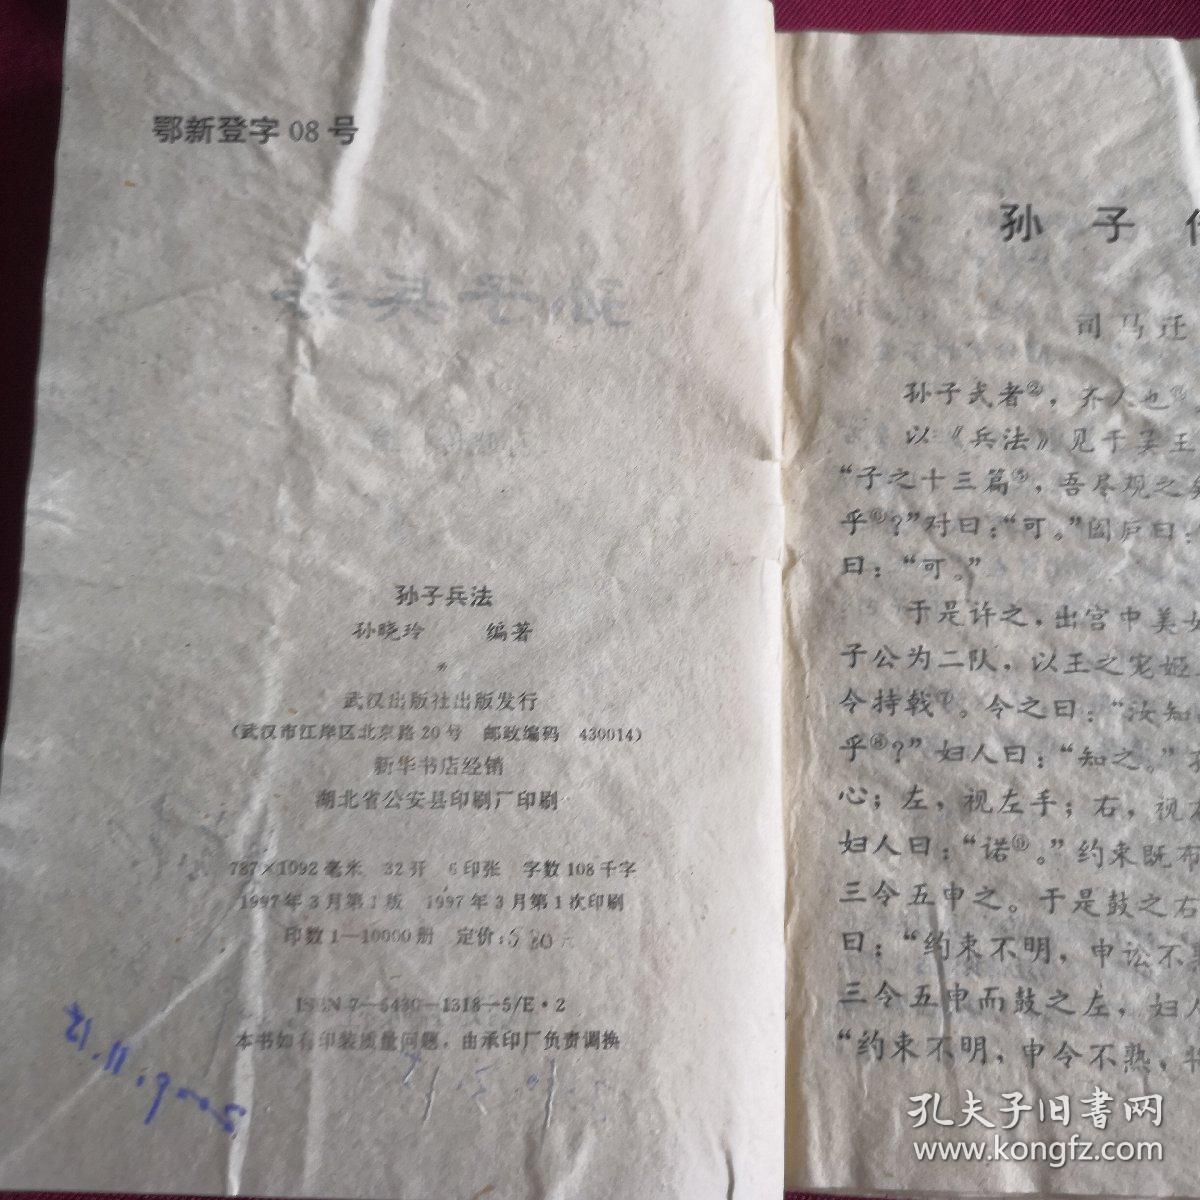 鄂新登字 08 号
孙子兵法
孙晓玲 编著
*
武汉出版社出版发行
(武汉市江岸区北京路20号 邮政编码 430014)
新华书店经销
湖北省公安县印刷厂印刷
787×1092毫米 32开 6印张 字数108千字
1997年3月第1版 1997年3月第1次印刷
印数1—10000册 定价:5.20元
ISBN 7—5430—1318—5/E·2
本书如有印装质量问题,由承印厂负责调换
孙 子
司马迁
孙子武者②,齐人也
以《兵法》见于吴王
“子之十三篇⑤,吾尽观之
乎⑥?”对曰:“可。”阖庐曰:
曰:“可。”
于是许之,出宫中美
子公为二队,以王之宠姬
令持戟⑦。令之曰:“汝知
乎⑧?”妇人曰:“知之。”
心;左,视左手;右,视
妇人曰:“诺⑪。”约束既布
三令五申之。于是鼓之右
曰:“约束不明,申讼不
三令五申而鼓之左,妇
“约束不明,申令不熟,
孔夫子旧书网
www.kongfz.com